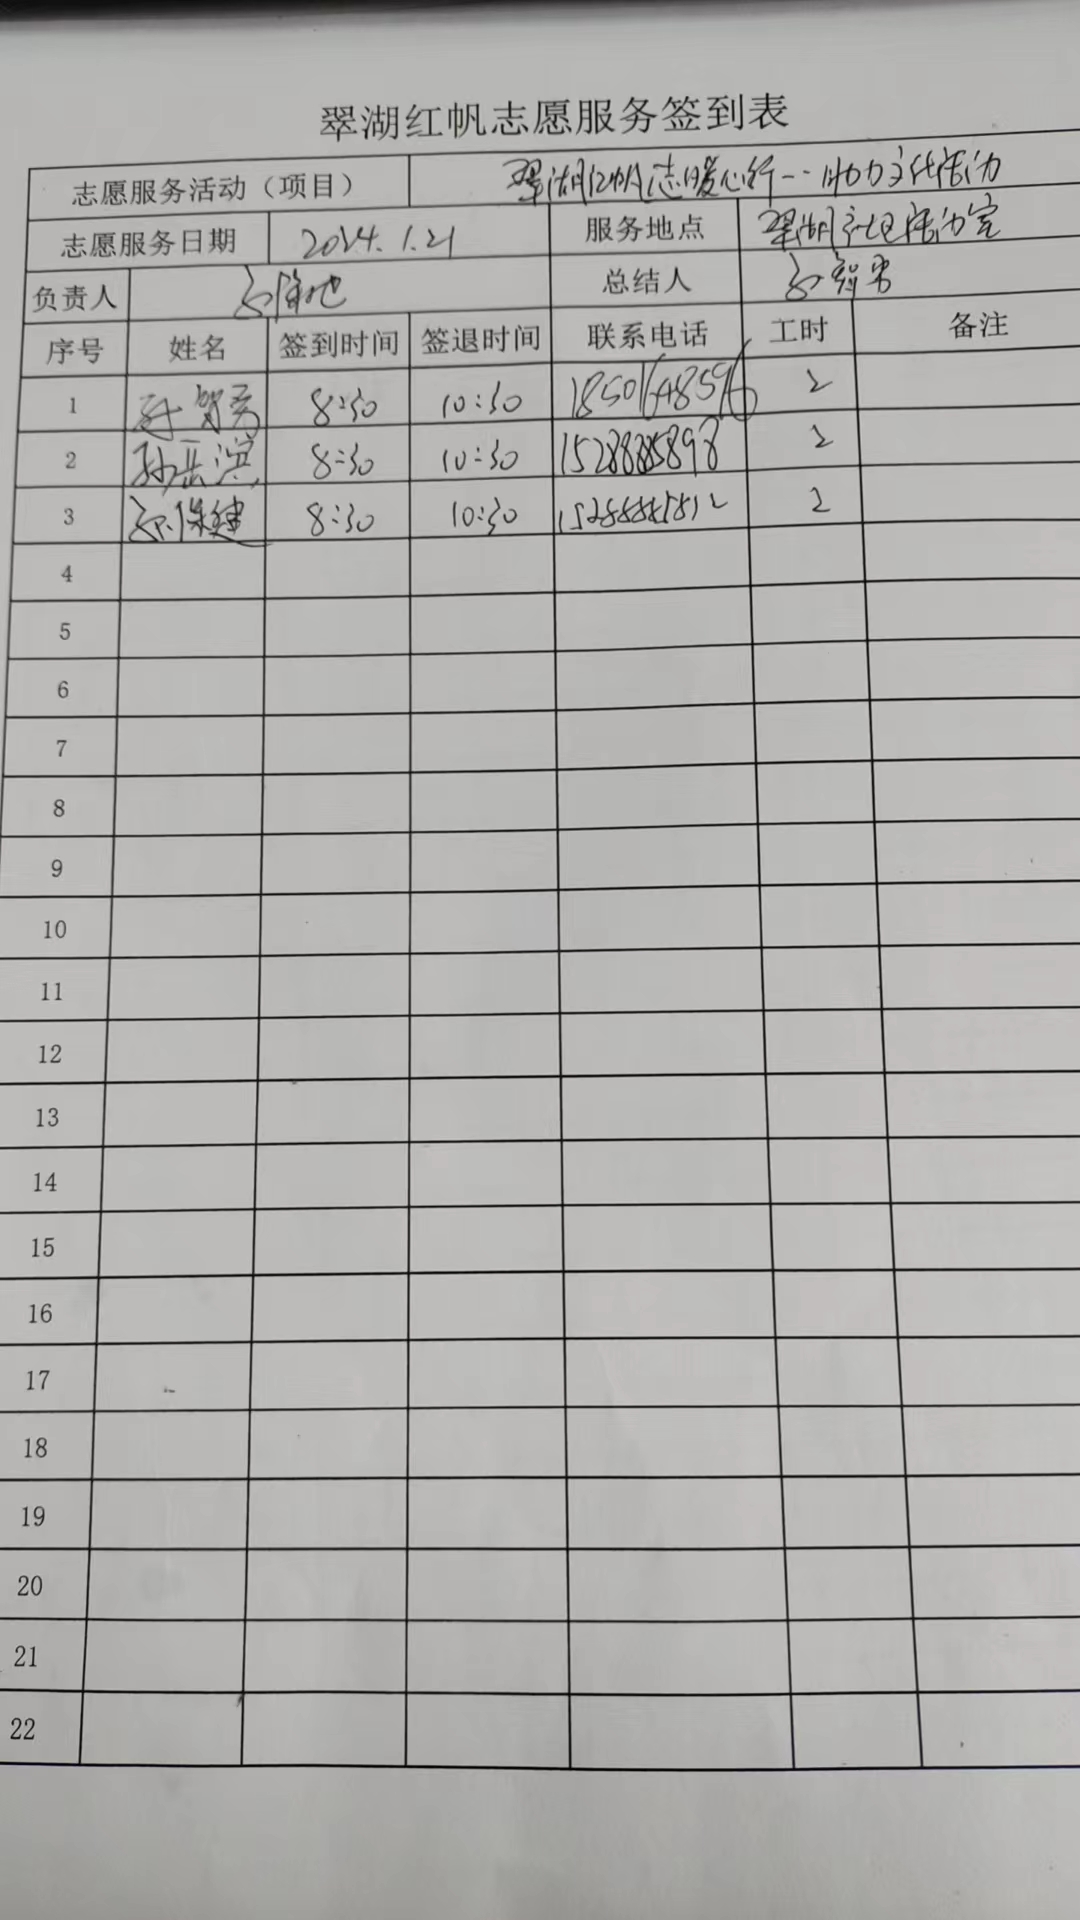 翠湖红帆志愿服务签到表
志愿服务活动（项目） 翠湖红帆志愿暖心行--助力文化活动
志愿服务日期 2024.1.21 服务地点 翠湖社区活动室
负责人 总结人
序号 姓名 签到时间 签退时间 联系电话 工时 备注
1 8:30 10:30 18501648596 2
2 孙岳滨 8:30 10:30 2
3 孙保建 8:30 10:30 2
4
5
6
7
8
9
10
11
12
13
14
15
16
17
18
19
20
21
22